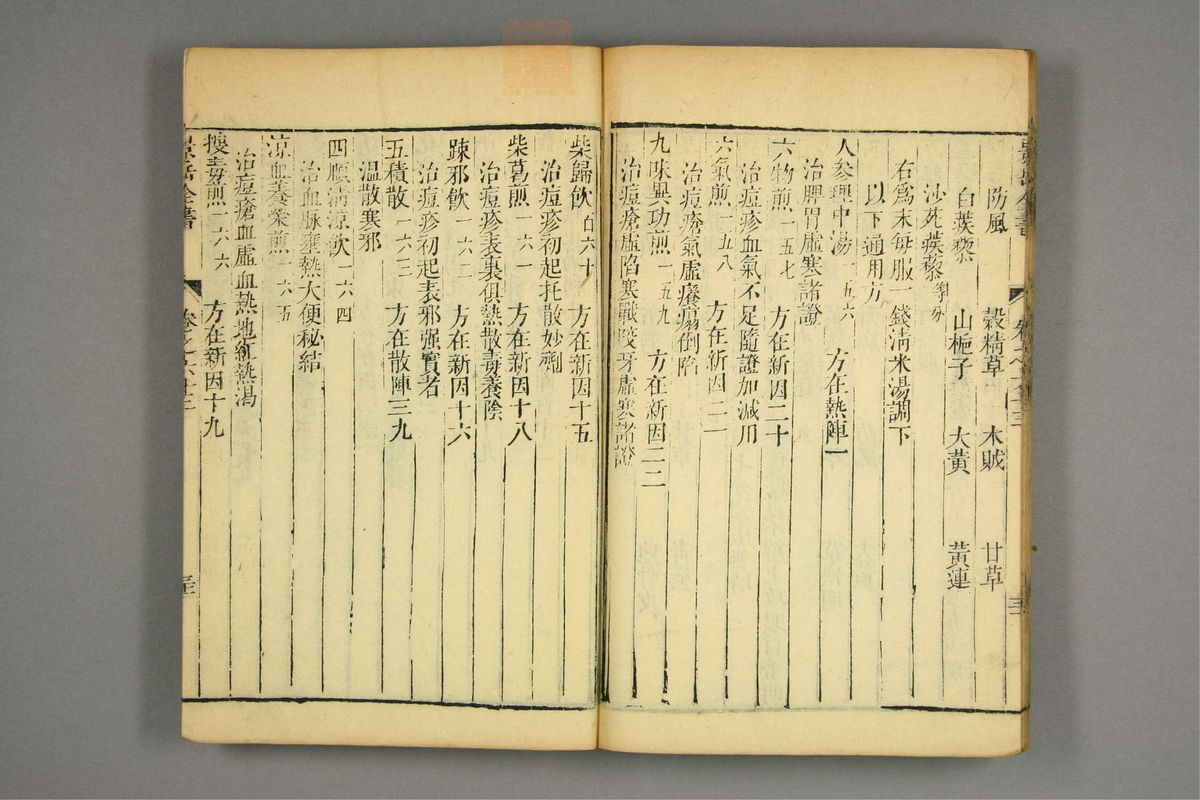 防風 穀精草 木賊 甘草
白蒺藜 山梔子 大黃 黃連
沙苑蒺藜等分
右爲末每服一錢淸米湯調下
以下通用方
人參理中湯一五六 方在熱陣一
治脾胃虛寒諸證
六物煎一五七 方在新因二十
治痘疹血氣不足隨證加減用
六氣煎一五八 方在新因二一
治痘瘡氣虛癢瘍倒陷
九味異功煎一五九 方在新因二二
治痘瘡虛陷寒戰咬牙虛寒諸證
柴歸飲百六十 方在新因十五
治痘疹初起托散妙劑
柴葛煎一六一 方在新因十八
治痘疹表裏俱熱散毒養陰
疎邪飲一六二 方在新因十六
治痘疹初起表邪强實者
五積散一六三 方在散陣三九
溫散寒邪
四順淸涼飲一六四
治血脉壅熱大便秘結
涼血養榮煎一六五
治痘瘡血虛血熱地紅熱渴
搜毒煎一六六 方在新因十九
景岳全書